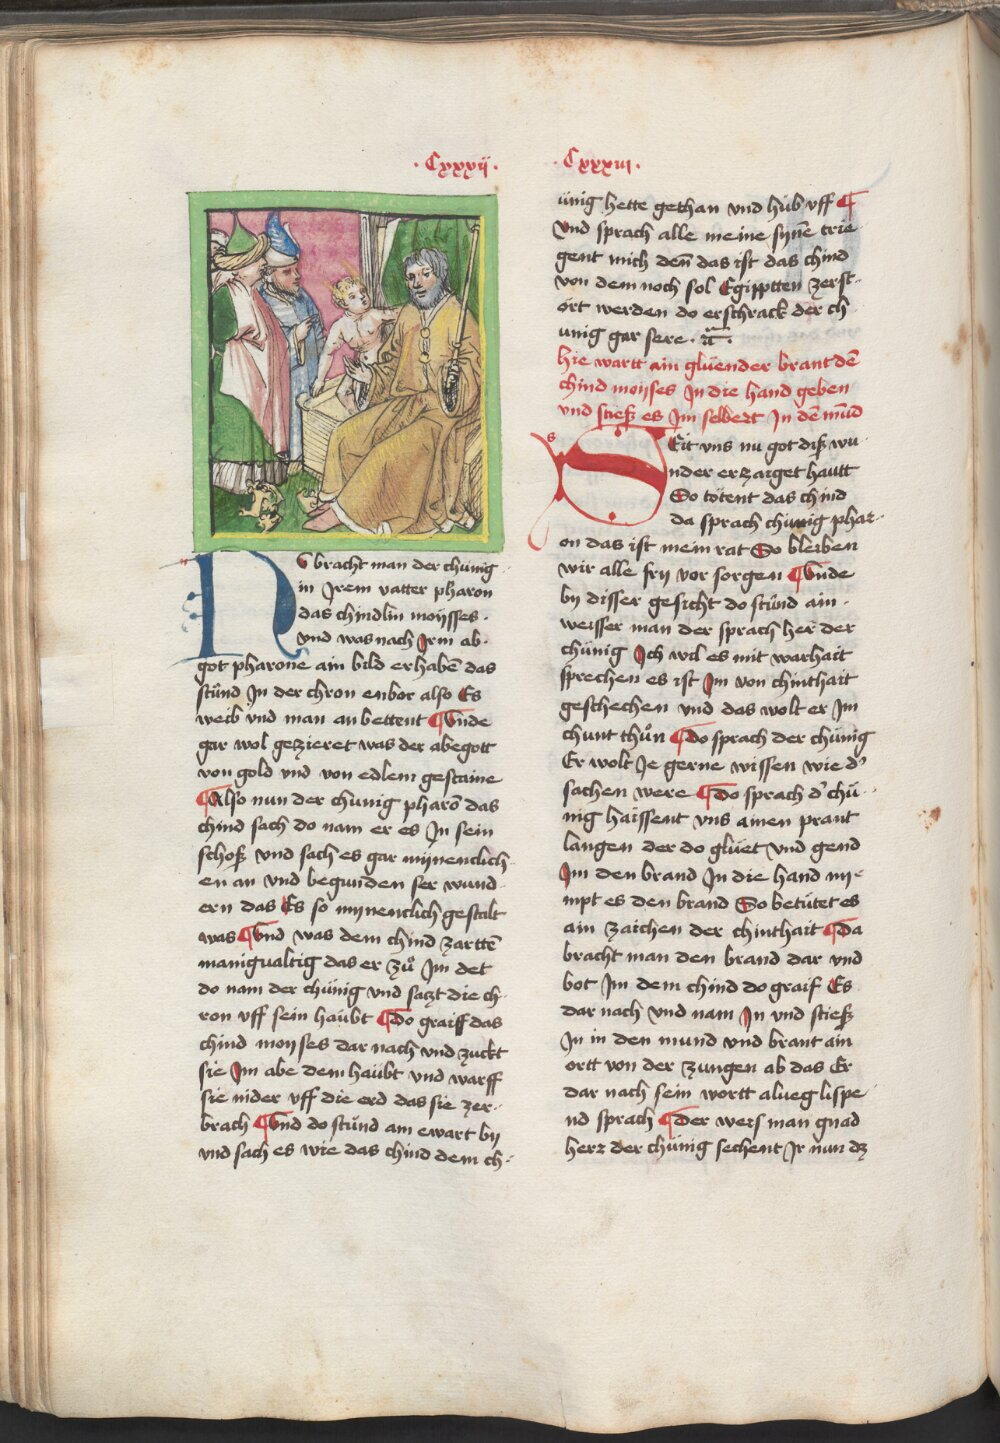 · Cxxxij ·
NU bracht man der chunig
in Jrem vatter pharon
das chindlin moijsses ·
vnd was nach Jrm ab-
got pharone ain bild erhabē das
stůnd Jn der chron enbor also Es
weib vnd man an bettent Vnde
gar wol gezieret was der abegott
von gold vnd von edlem gestaine
Also nun der chunig pharō das
chind sach do nam er es Jn sein
schoß vnd sach es gar mijnenclich
en an vnd begunden ser wund
ern das Es so mijnenclich gestalt
was Vnd was dem chind zarttē
manigualtig das er zů Jm det
do nam der chünig vnd satzt die ch-
ron vff sein haübt Do graiff das
chind moijses dar nach vnd zuckt
sie Jm abe dem haübt vnd warff
sie nider vff die erd das sie zer-
brach Vnd do stůnd am ewart bij
vnd sach es wie das chind dem ch-
· Cxxxiii ·
ünig hette gethan vnd hůb vff
Vnd sprach alle meine sijnē trie
gent mich den̄ das ist das chind
von dem noch sol Egipptten zerst-
ört werden do erschrack der ch
unig gar sere · ꝛc̄ ·
hie wartt ain glüender brant dē
chind moijses Jn die hand geben
vnd stieß es Jm selbert Jn dē mūd
SEit vns nu got diß wu
nder erzaiget hautt
So tötent das chind
da sprach chunig phar-
on das ist mein rat So bleiben
wir alle frij vor sorgen Vnde
bij disser gesicht do stůnd ain
weisser man der sprach her der
chünig Jch wil es mit warhait
sprechen es ist Jm von chinthait
geschechen vnd das wolt er Jm
chunt thůn Do sprach der chünig
Er wolt Je gerne wissen wie d'
sachen were Do sprach d' chü-
nig haissent vns ainen prant
langen der do glüet vnd gend
Jm den brand Jn die hand nij-
mpt es den brand So betütet es
ain zaichen der chinthait Da
bracht man den brand dar vnd
bot Jm dem chind do graif Es
dar nach vnd nam Jn vnd stieß
Jn in den mund vnd brant ain
ortt von der zungen ab das Er
dar nach sein wortt alueg lispe
nd sprach Der weis man gnad
herr der chünig sechent Jr nun dz